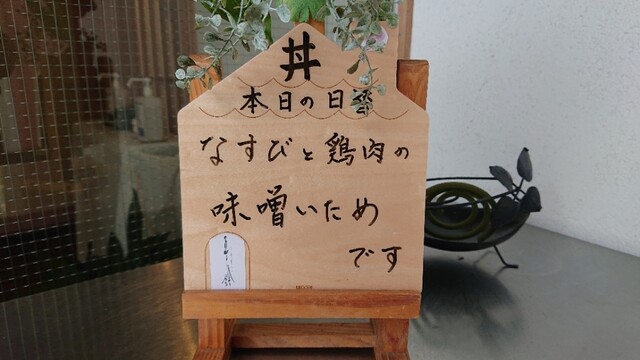 丼
本日の日替
なすびと鶏肉の
味噌いため
です